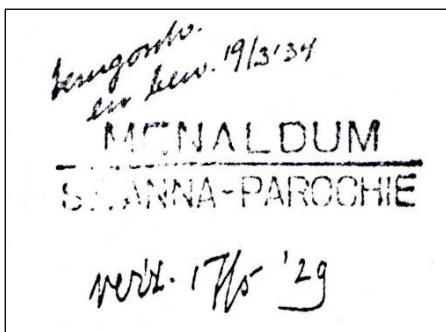 terugontv.
en bew. 19/3'34
MENALDUM
ST. ANNA-PAROCHIE
verz. 17/5 '29